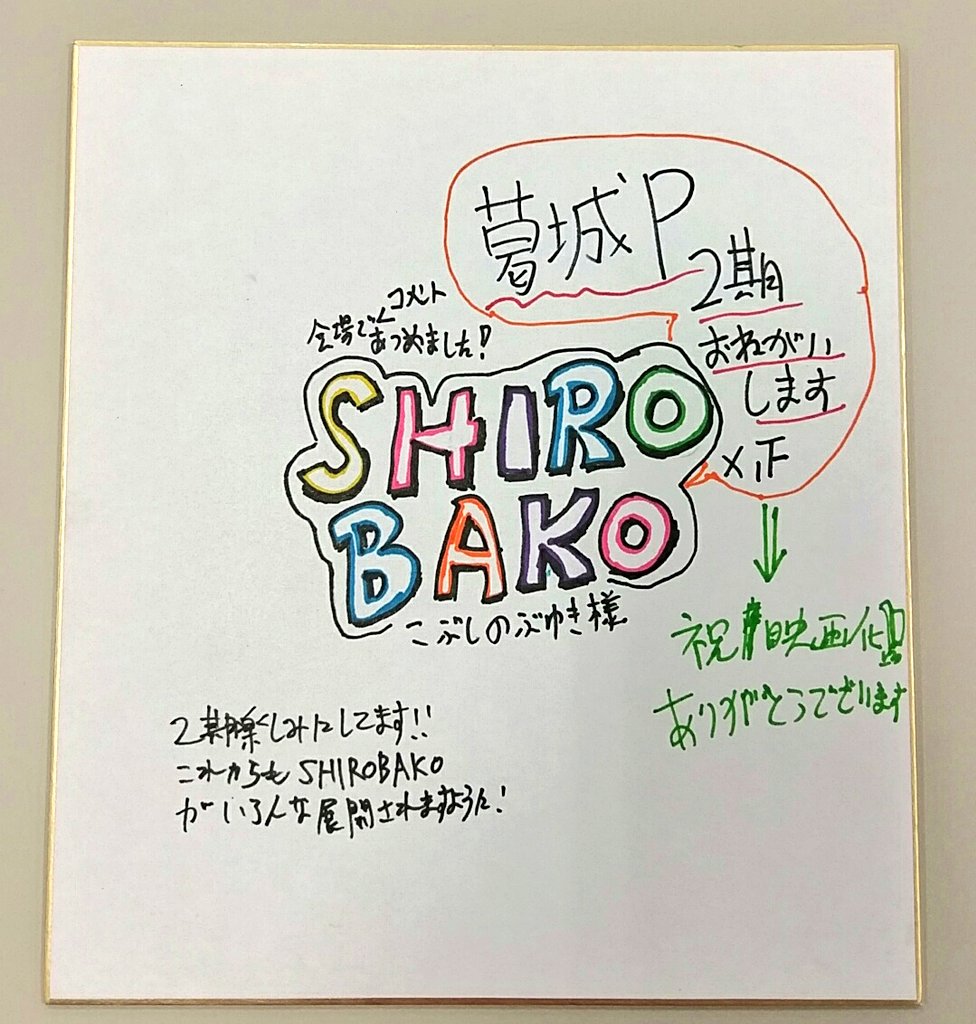 葛城P
2期
おねがい
します
コメント
会場で
あつめました!
SHIRO
BAKO
こぶしのぶゆき様
祝!映画化!!
ありがとうございます
2期楽しみにしてます!!
これからも SHIROBAKO
がいろんな展開されますように!